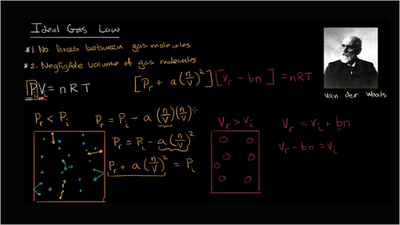 Ideal Gas Law
* 1. No forces between gas molecules
* 2. Negligible volume of gas molecules
PᵢVᵢ = nRT
[Pᵣ + a(n/V)²][Vᵣ - bn] = nRT
van der Waals
Pᵣ < Pᵢ
Pᵣ = Pᵢ - a(n/V)(n/V)
Pᵣ = Pᵢ - a(n/V)²
Pᵣ + a(n/V)² = Pᵢ
Vᵣ > Vᵢ
Vᵣ = Vᵢ + bn
Vᵣ - bn = Vᵢ